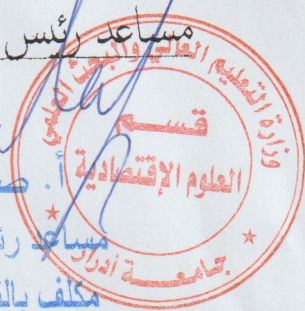 مساعد رئيس
وزارة التعليم العالي والبحث العلمي
قسم
العلوم الإقتصادية
جامعة أدرار
أ. صد
مساعد رئي
مكلف بالت